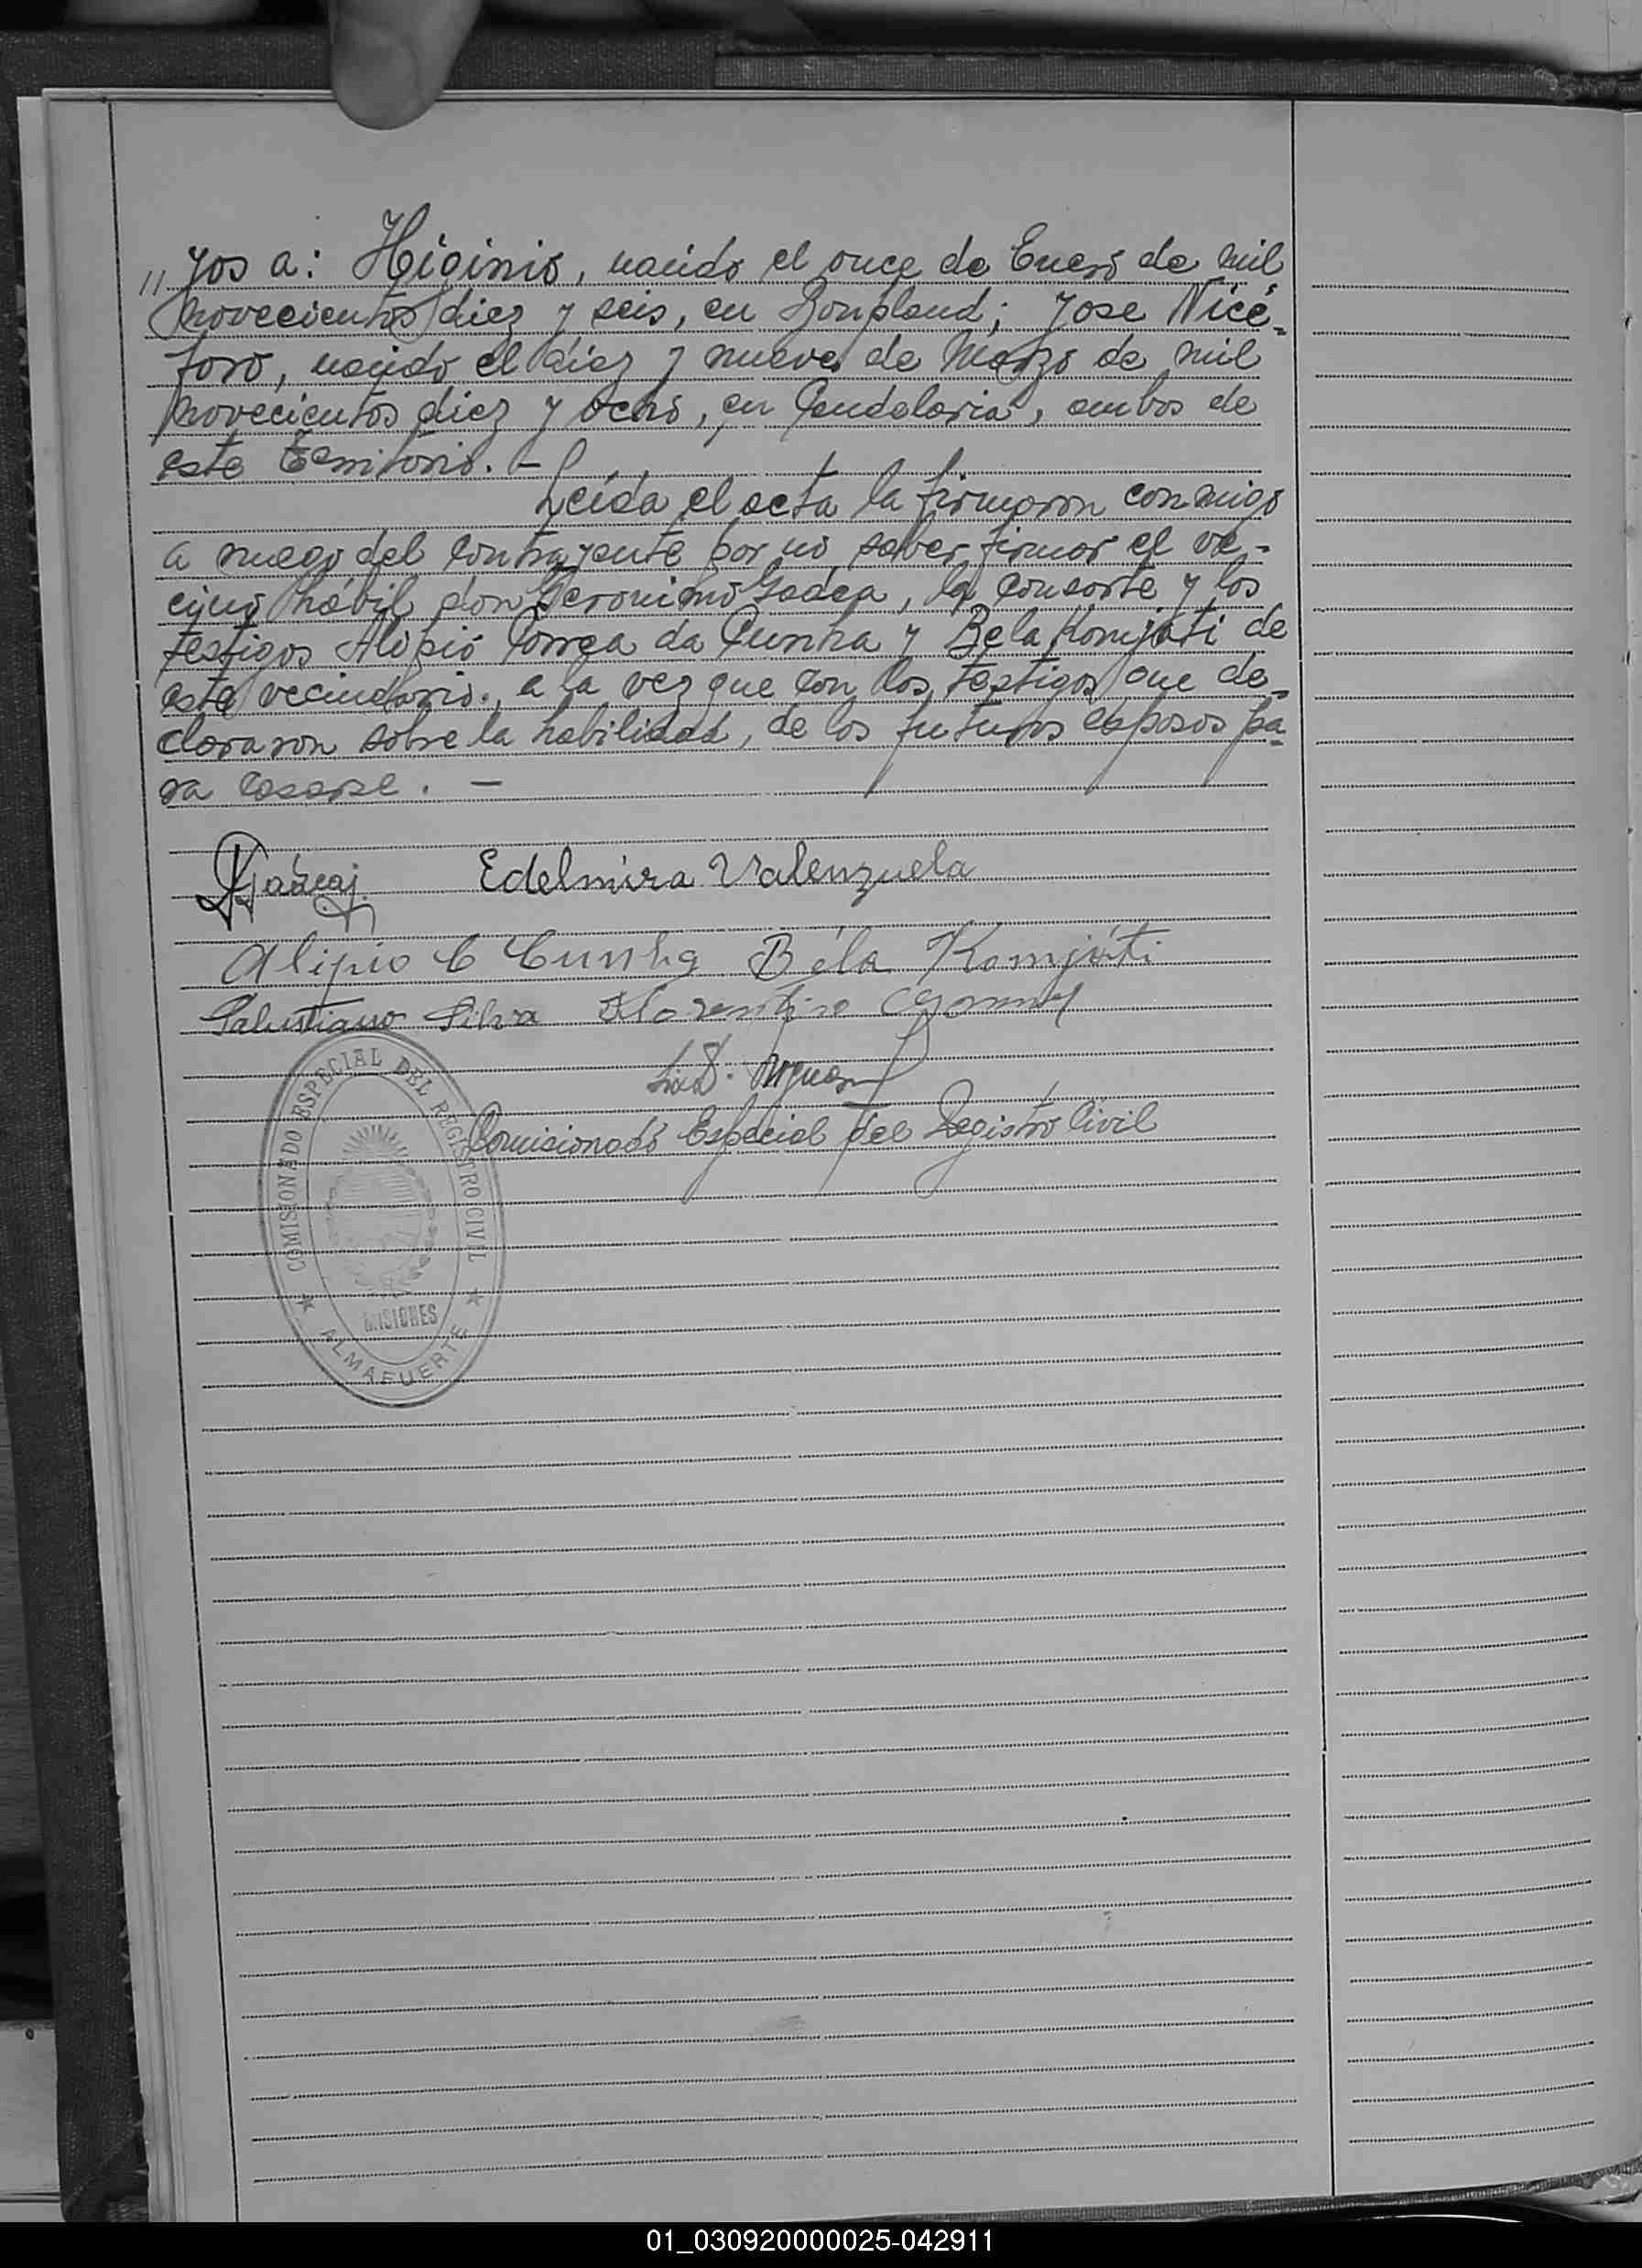 " jos a: Higinio, nacido el once de Enero de mil
novecientos diez y seis, en Bonpland; Jose Nicé-
foro, nacido el diez y nueve de Marzo de mil
novecientos diez y ocho, en Candelaria, ambos de
este Territorio. -
Leída el acta la firmaron conmigo
a ruego del contrayente por no saber firmar el ve-
cino hábil don Geronimo Gadea, la consorte y los
testigos Alipio Correa da Cunha y Bela Komjáti de
este vecindario, a la vez que con los testigos que de-
clararon sobre la habilidad, de los futuros esposos pa-
ra casarse. -
Edelmira Valenzuela
Alipio C Cunha Béla Komjáti
Salustiano Silva Florentino
Comisionado Especial del Registro Civil
COMISIONADO ESPECIAL DEL REGISTRO CIVIL
MISIONES
★ ALMAFUERTE ★
01_030920000025-042911